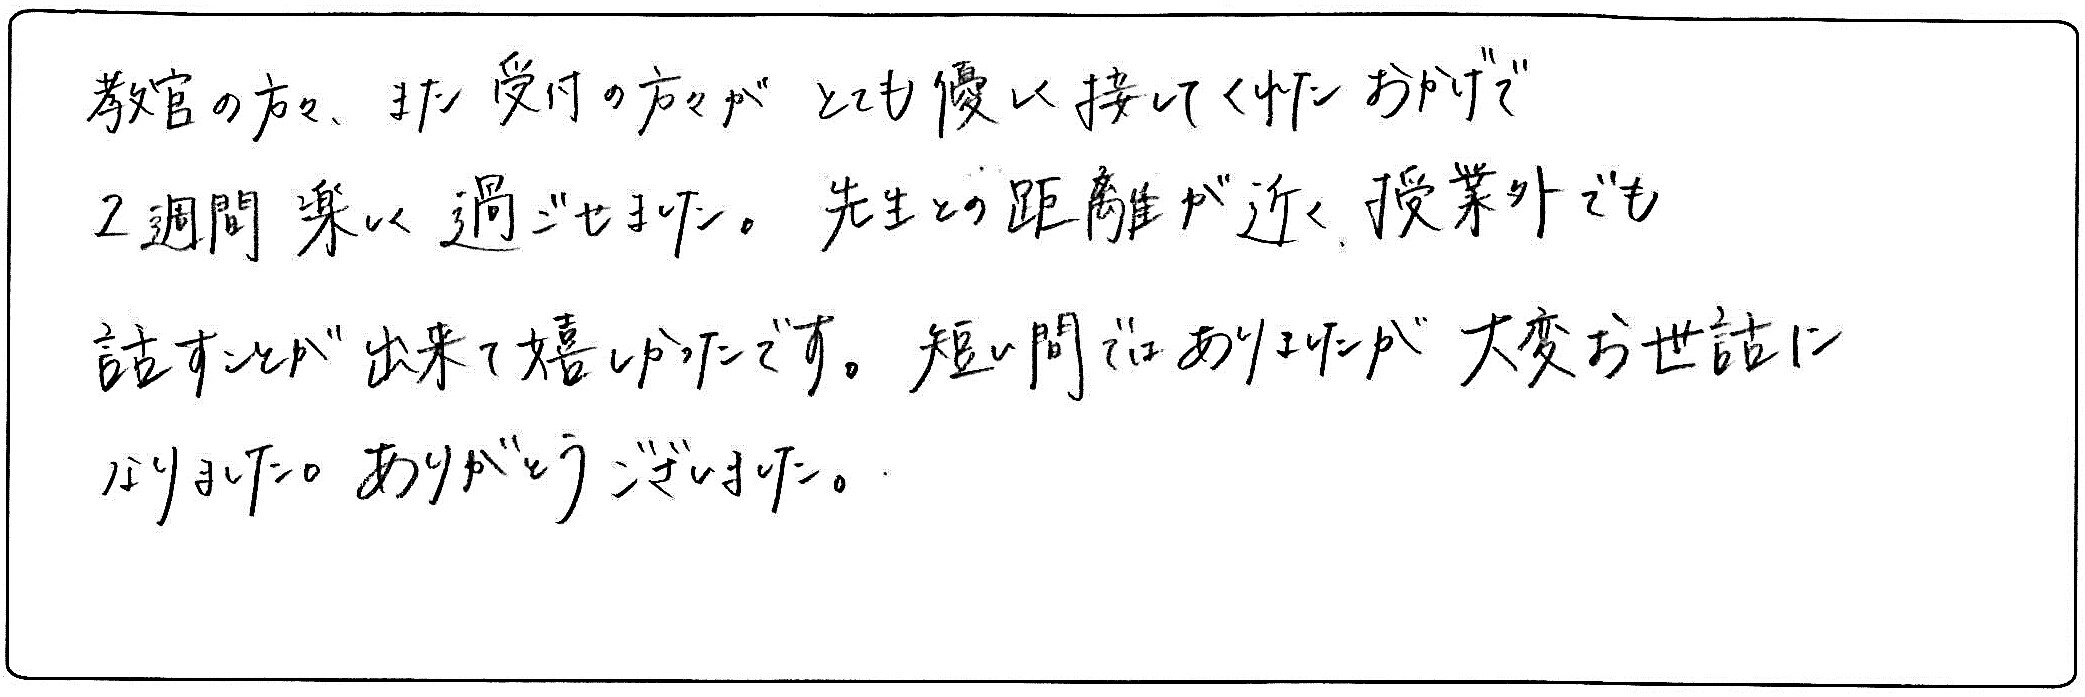 教官の方々、また受付の方々がとても優しく接してくれたおかげで
2週間楽しく過ごせました。先生との距離が近く、授業外でも
話すことが出来て嬉しかったです。短い間ではありましたが大変お世話に
なりました。ありがとうございました。